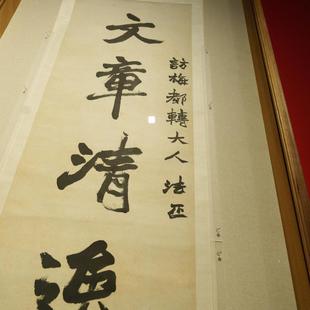 訪梅都轉大人 法正
文章清